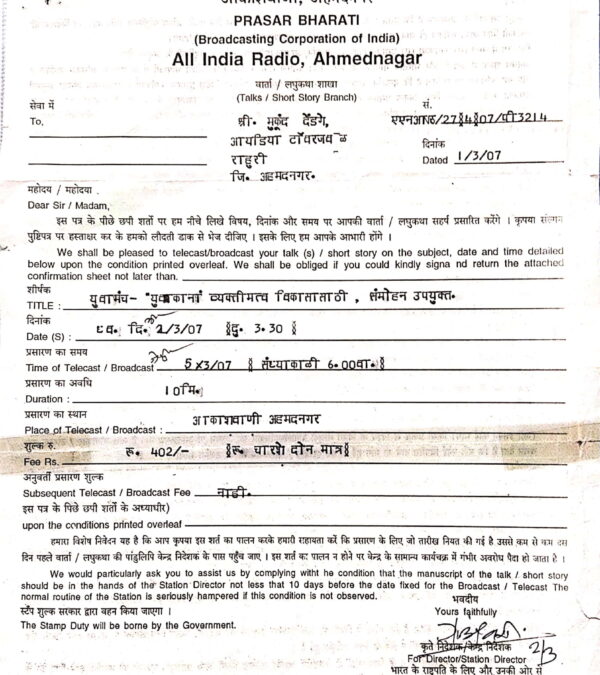 आकाशवाणी, अहमदनगर
PRASAR BHARATI
(Broadcasting Corporation of India)
All India Radio, Ahmednagar
वार्ता / लघुकथा शाखा
(Talks / Short Story Branch)
सेवा में
To,
श्री. मुकुंद दैंडगे,
आयडिया टॉवरजवळ
राहुरी
जि. अहमदनगर.
सं.
एएनआरए/27४4४07/पी3214
दिनांक
Dated 1/3/07
महोदय / महोदया
Dear Sir / Madam,
इस पत्र के पीछे छपी शर्तो पर हम नीचे लिखे विषय, दिनांक और समय पर आपकी वार्ता / लघुकथा सहर्ष प्रसारित करेंगे । कृपया संलग्न
पुष्टिपत्र पर हस्ताक्षर कर के हमको लौदती डाक से भेज दीजिए । इसके लिए हम आपके आभारी होंगे ।
We shall be pleased to telecast/broadcast your talk (s) / short story on the subject, date and time detailed
below upon the condition printed overleaf. We shall be obliged if you could kindly signa nd return the attached
confirmation sheet not later than.
शीर्षक
TITLE : युवामंच- युवकांना व्यक्तीमत्व विकासासाठी , संमोहन उपयुक्त.
दिनांक
Date (S) : ध्व. दि. 2/3/07 दु. 3.30
प्रसारण का समय
Time of Telecast / Broadcast 5 3/07 संध्याकाळी 6.00वा.
प्रसारण का अवधि
Duration : 10मि.
प्रसारण का स्थान
Place of Telecast / Broadcast : आकाशवाणी अहमदनगर
शुल्क रु.
Fee Rs. रु. 402/- रु. चारशे दोन मात्र
अनुवर्ती प्रसारण शुल्क
Subsequent Telecast / Broadcast Fee नाही.
इस पत्र के पिछे छपी शर्तो के अध्याधीर)
upon the conditions printed overleaf
हमारा विशेष निवेदन यह है कि आप कृपया इस शर्त का पालन करके हमारी राहायता करें कि प्रसारण के लिए जो तारीख नियत की गई है उससे कम से कम दस
दिन पहले वार्ता / लघुकथा की पांडुलिपि केन्द्र निदेशक के पास पहुँच जाए । इस शर्त का पालन न होने पर केन्द्र के सामान्य कार्यचक्र में गंभीर अवरोध पैदा हो जाता है ।
We would particularly ask you to assist us by complying witht he condition that the manuscript of the talk / short story
should be in the hands of the Station Director not less that 10 days before the date fixed for the Broadcast / Telecast The
normal routine of the Station is seriously hampered if this condition is not observed.
स्टँप शुल्क सरकार द्वारा वहन किया जाएगा ।
The Stamp Duty will be borne by the Government.
भवदीय
Yours faithfully
कृते निदेशक/केन्द्र निदेशक
2/3
For Director/Station Director
भारत के राष्ट्रपति के लिए और उनकी ओर से